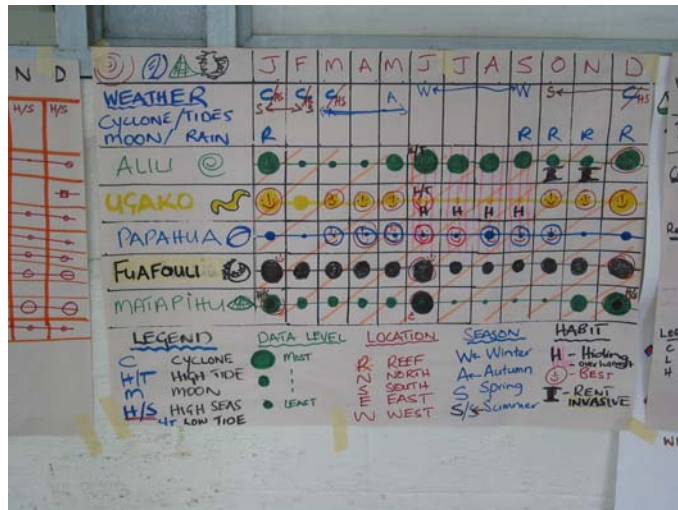 N D
H/S H/S
J F M A M J J A S O N D
WEATHER C/HS C/HS C/HS A W W S C/HS
CYCLONE/TIDES S S
MOON/RAIN R R R R R
ALILI H/T
UGAKO H/T
H H H H
PAPAHUA
FUAFOULI
MATAPIHU H/S
LEGEND
C CYCLONE
H/T HIGH TIDE
M MOON
H/S HIGH SEAS
LT LOW TIDE
DATA LEVEL
MOST
LEAST
LOCATION
R REEF
N NORTH
S SOUTH
E EAST
W WEST
SEASON
W Winter
A Autumn
S Spring
S/S Summer
HABIT
H - Hiding
- overhangs
- BEST
I - RENT
INVASIVE